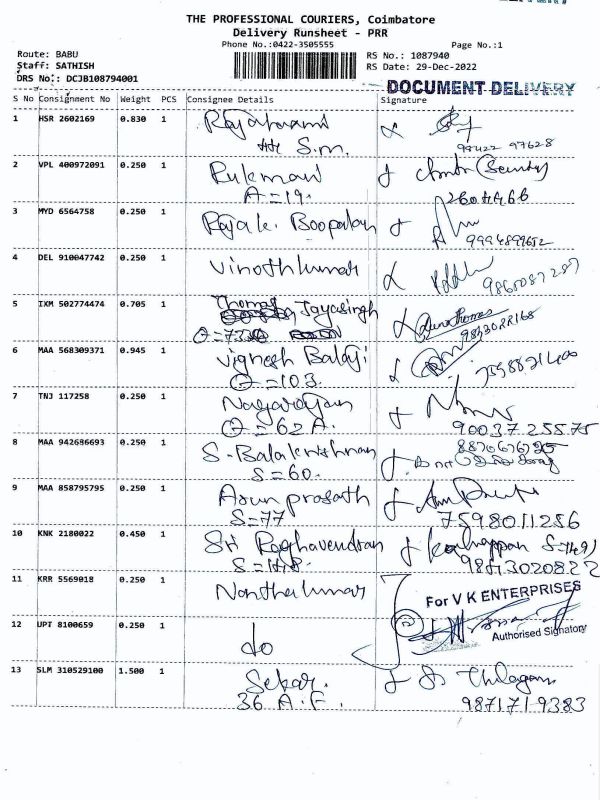 THE PROFESSIONAL COURIERS, Coimbatore
Delivery Runsheet - PRR
Phone No.:0422-3505555
Page No.:1
Route: BABU
RS No.: 1087940
Staff: SATHISH
RS Date: 29-Dec-2022
DRS No.: DCJB108794001
DOCUMENT DELIVERY
S No Consignment No Weight PCS Consignee Details Signature
1 HSR 2602169 0.830 1
S.m.
98422 97628
2 VPL 400972091 0.250 1 Rukmani (Security)
A=19.
2604466
3 MYD 6564758 0.250 1 Rajak. Boopalan
9994899652
4 DEL 910047742 0.250 1 Vinothkumar
9865087287
5 IXM 502774474 0.705 1 Thomas Jayasingh
6 MAA 568309371 0.945 1 Vignesh Balaji
O=103.
7 TNJ 117258 0.250 1 Nagarajan
O=62A.
9003725575
8 MAA 942686693 0.250 1 S-Balakrishnan
S=60.
9 MAA 858795795 0.250 1 Arun prasath
S=77
7598011256
10 KNK 2180022 0.450 1 Sri Raghavendran
S=148.
9843020822
11 KRR 5569018 0.250 1 Nanthakumar
For V K ENTERPRISES
12 UPT 8100659 0.250 1 do
Authorised Signatory
13 SLM 310529100 1.500 1 Sekar.
36 A.F.
9871719383